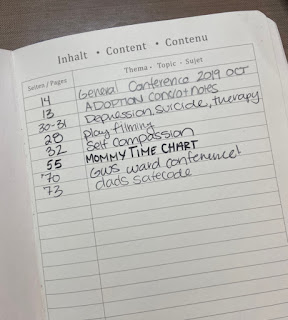 Inhalt • Content • Contenu
Seiten / Pages Thema • Topic • Sujet
14 General Conference 2019 OCT
13 ADOPTION concept notes
30-31 Depression, suicide, therapy
28 play filming
32 Self compassion
55 MOMMY TIME CHART
70 GWS ward conference!
73 dads safecode